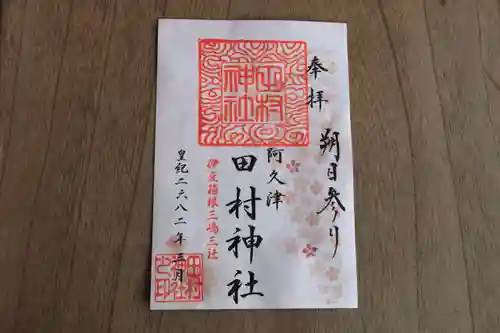 奉拝
朔日参り
田村
神社
阿久津
田村神社
伊豆箱根三嶋三社
皇紀二六八二年五月
田村
神社
之印